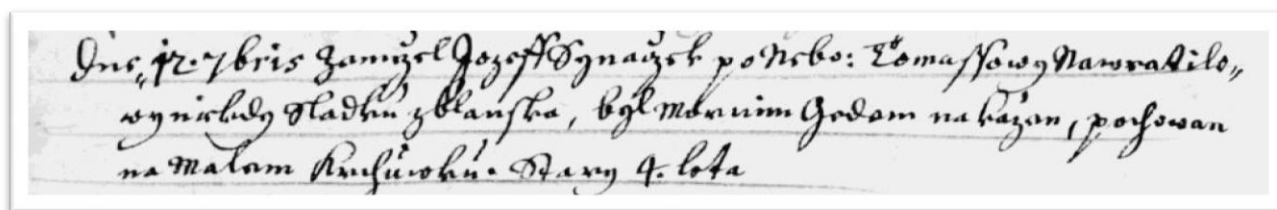 Dne 12. 7bris Zemrzel Jozeff Synaczek po Nebo: Tomassowy Nawratilo„
wy niekdy Sladku z Blanska, byl Mornim Gedem nakazen, pochowan
na Malem Krchuwku. Stary 4. leta